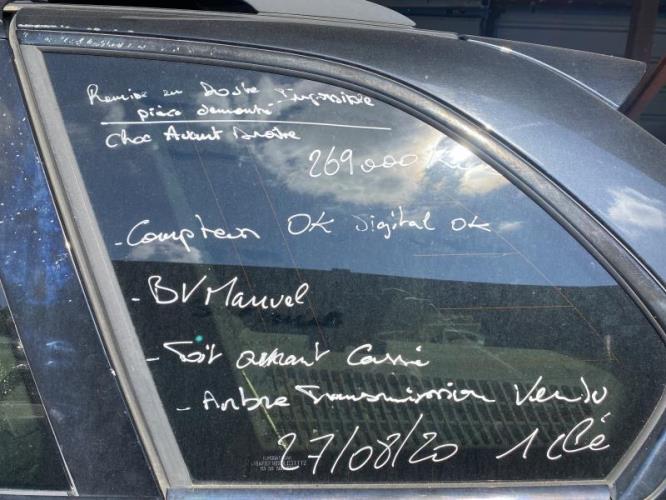 Remise en Route Impossible
pièce démonté
Choc Avant Droitre
269000 Km
- Compteur OK Digital OK
- BV Manuel
- Toit ouvrant Cassé
- Arbre Transmission Vendu
27/08/20 1 clé